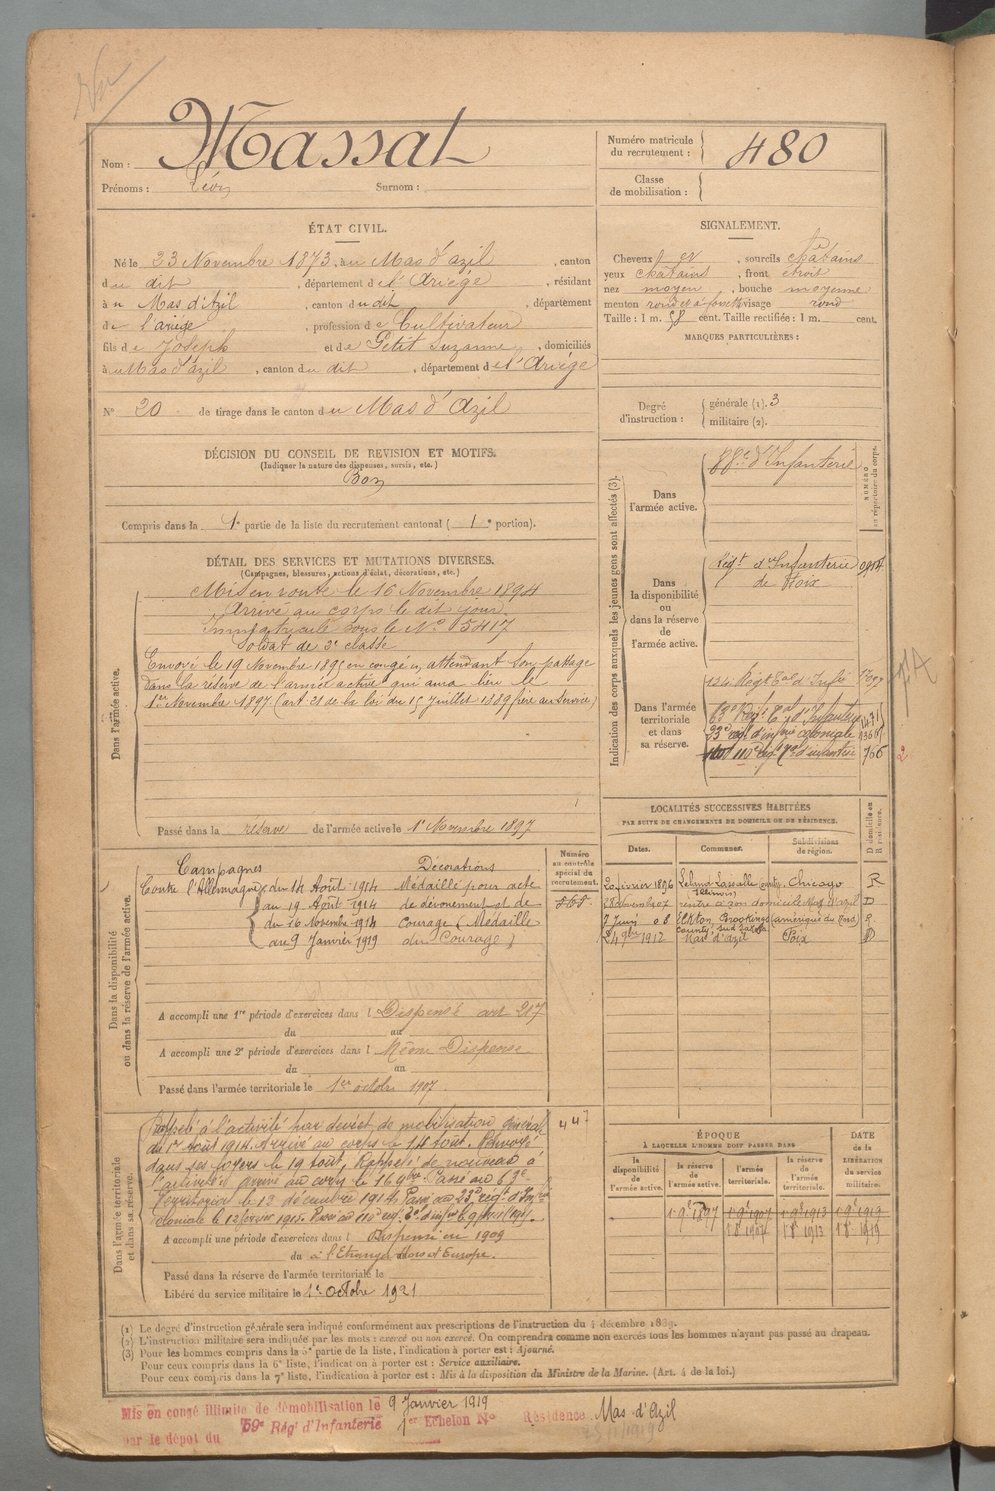 Massat
Nom :
Prénoms : Léon Surnom :
Numéro matricule
du recrutement : 480
Classe
de mobilisation :
ÉTAT CIVIL.
Né le 23 Novembre 1873, au Mas d'azil, canton
du dit, département de l'Ariége, résidant
à u Mas d'Azil, canton du dit, département
de l'ariège, profession de Cultivateur
fils de Joseph et de Petit Suzanne, domiciliés
à u Mas d'azil, canton du dit, département de l'Ariége
N° 20 de tirage dans le canton du Mas d'Azil
SIGNALEMENT.
Cheveux et, sourcils chatains
yeux chatains, front étroit
nez moyen, bouche moyenne
menton rond et à fossette visage rond
Taille : 1 m. 58 cent. Taille rectifiée : 1 m. cent.
MARQUES PARTICULIÈRES :
Degré
d'instruction : générale (1). 3
militaire (2).
DÉCISION DU CONSEIL DE REVISION ET MOTIFS.
(Indiquer la nature des dispenses, sursis, etc.)
Bon
Compris dans la 1e partie de la liste du recrutement cantonal ( 1e portion).
DÉTAIL DES SERVICES ET MUTATIONS DIVERSES.
(Campagnes, blessures, actions d'éclat, décorations, etc.)
Dans l'armée active.
Mis en route le 16 Novembre 1894
Arrivé au corps le dit jour.
Immatriculé sous le N° 5417
Soldat de 2e classe
Envoyé le 19 Novembre 1895 en congé en attendant son passage
dans la réserve de l'armée active qui aura lieu le
1er Novembre 1897 (art 21 de la loi du 15 juillet 1889 frère au service)
Passé dans la réserve de l'armée active le 1er Novembre 1897
Indication des corps auxquels les jeunes gens sont affectés (3).
NUMÉRO
au répertoire du corps.
Dans
l'armée active.
d'Infanterie
Dans
la disponibilité
ou
dans la réserve
de
l'armée active.
Régt d'Infanterie
de Foix
Dans l'armée
territoriale
et dans
sa réserve.
134 Régt Eal d'Infie
63e Régt Eal d'Infanterie
23e régt d'infie coloniale
110e d'infanterie 766
2
LOCALITÉS SUCCESSIVES HABITÉES
PAR SUITE DE CHANGEMENTS DE DOMICILE OU DE RÉSIDENCE.
D domicile ou
R résidence.
Dates. Communes. Subdivisions
de région.
1896 Leland Lassalle county Chicago R
Illinois
rentre à son domicile Mas d'azil D
7 Juin 08 Elkton, Brookings (amérique du Nord) R
County, sud Dakota
24 9bre 1912 Mas d'azil Foix D
Dans la disponibilité
ou dans la réserve de l'armée active.
Numéro
au contrôle
spécial du
recrutement.
Campagnes Décorations
Contre l'Allemagne du 14 Août 1914 Médaillé pour acte
au 19 Août 1914 de dévouement et de
du 16 Novembre 1914 courage (Médaille
au 9 Janvier 1919 du Courage)
A accompli une 1re période d'exercices dans l Dispensé art 217
du au
A accompli une 2e période d'exercices dans l Même Dispense
du au
Passé dans l'armée territoriale le 1er octobre 1907
Dans l'armée territoriale
et dans sa réserve.
Rappelé à l'activité par décret de mobilisation Général
du 1er Août 1914. Arrivé au corps le 14 Août. Renvoyé
dans ses foyers le 19 Août. Rappelé de nouveau à
l'activité arrivé au corps le 16 9bre. Passé au 63e
Territorial le 12 décembre 1914. Passé au 23e régt d'Infie
coloniale le 12 février 1917. Passé au 110e régt
447
A accompli une période d'exercices dans l Dispensé en 1909
du à l'Etranger hors d'Europe.
Passé dans la réserve de l'armée territoriale le
Libéré du service militaire le 1er octobre 1921
ÉPOQUE
À LAQUELLE L'HOMME DOIT PASSER DANS
DATE
de la
LIBÉRATION
du service
militaire.
la
disponibilité
de
l'armée active.
la réserve
de
l'armée active.
l'armée
territoriale.
la réserve
de
l'armée
territoriale.
1er 9bre 1897 1er 9bre 1907 1er 9bre 1913 1er 9bre 1919
1er 8bre 1907 1er 8bre 1913 1er 8bre 1919
(1) Le degré d'instruction générale sera indiqué conformément aux prescriptions de l'instruction du 4 décembre 1889.
(2) L'instruction militaire sera indiquée par les mots : exercé ou non exercé. On comprendra comme non exercés tous les hommes n'ayant pas passé au drapeau.
(3) Pour les hommes compris dans la 5e partie de la liste, l'indication à porter est : Ajourné.
Pour ceux compris dans la 6e liste, l'indication à porter est : Service auxiliaire.
Pour ceux compris dans la 7e liste, l'indication à porter est : Mis à la disposition du Ministre de la Marine. (Art. 4 de la loi.)
Mis en congé illimité de démobilisation le 9 Janvier 1919
par le dépôt du 59e Rég d'Infanterie 1er Echelon N° Résidence Mas-d'Azil